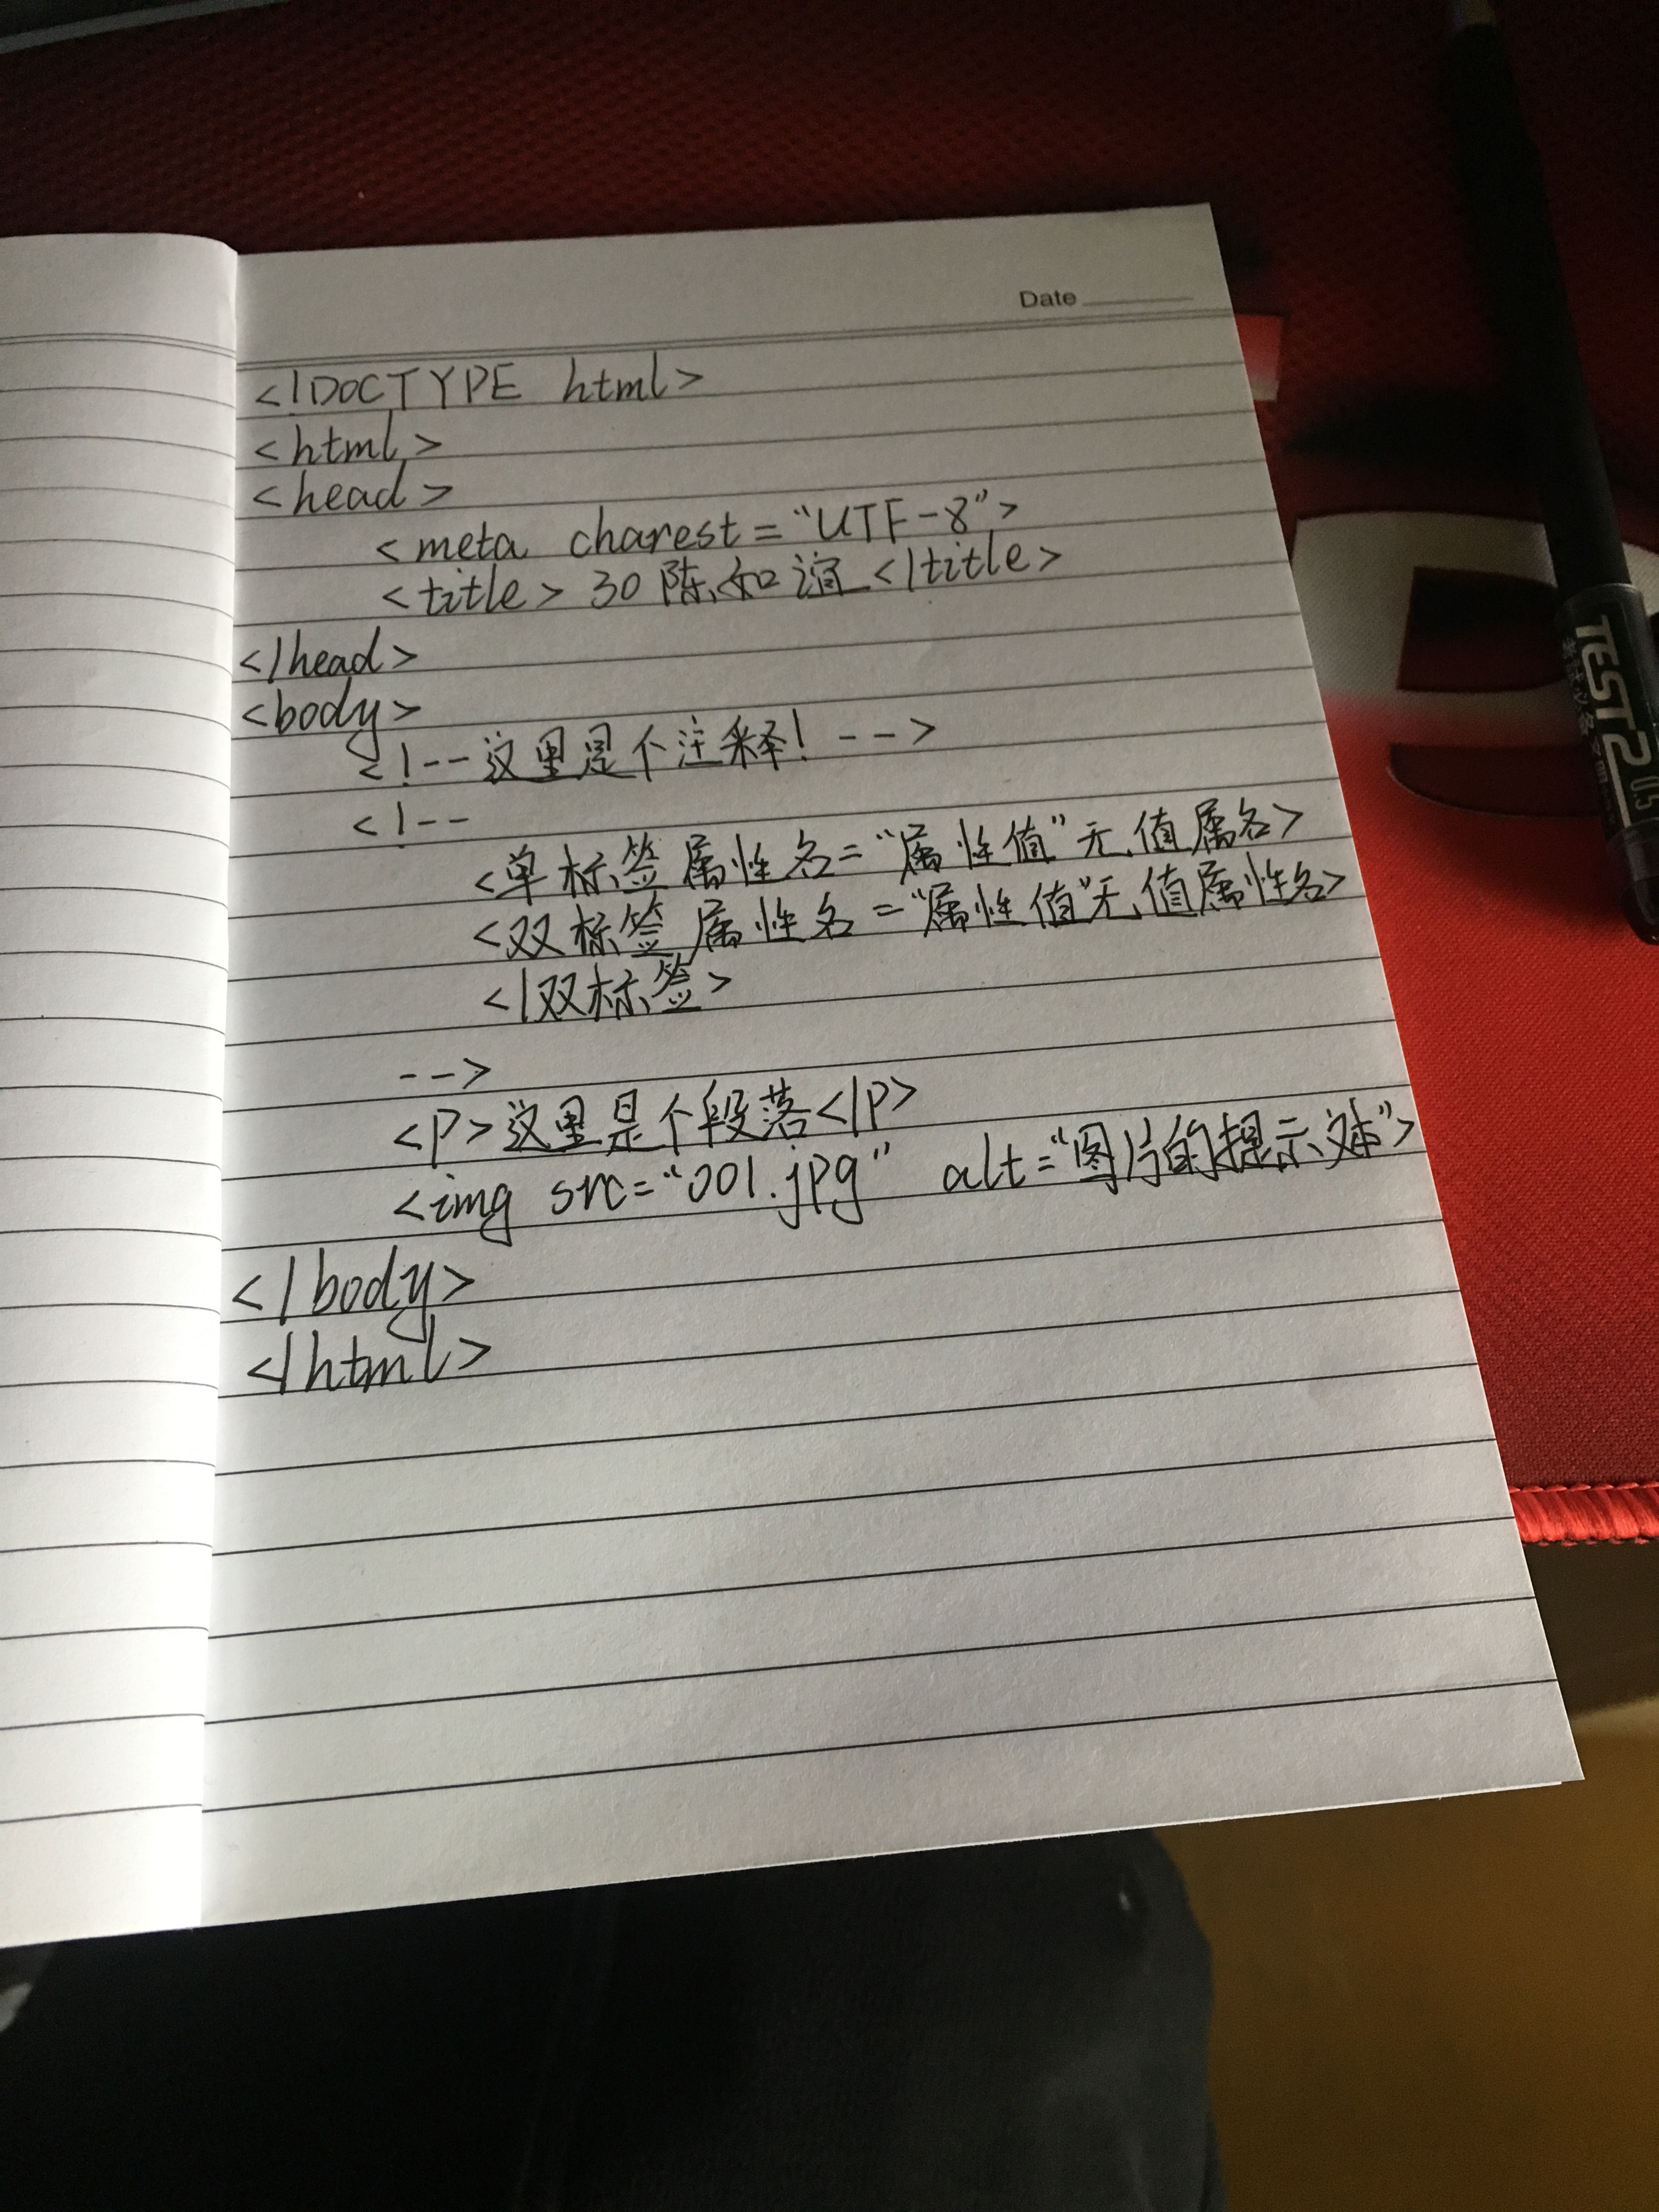 Date
<!DOCTYPE html>
<html>
<head>
<meta charest="UTF-8">
<title>30陈如谊</title>
</head>
<body>
<!--这里是个注释! -->
<!--
<单标签属性名="属性值"无值属名>
<双标签属性名="属性值"无值属性名>
</双标签>
-->
<P>这里是个段落</P>
<img src="001.jpg" alt="图片的提示文本">
</body>
</html>
TEST2
0.5